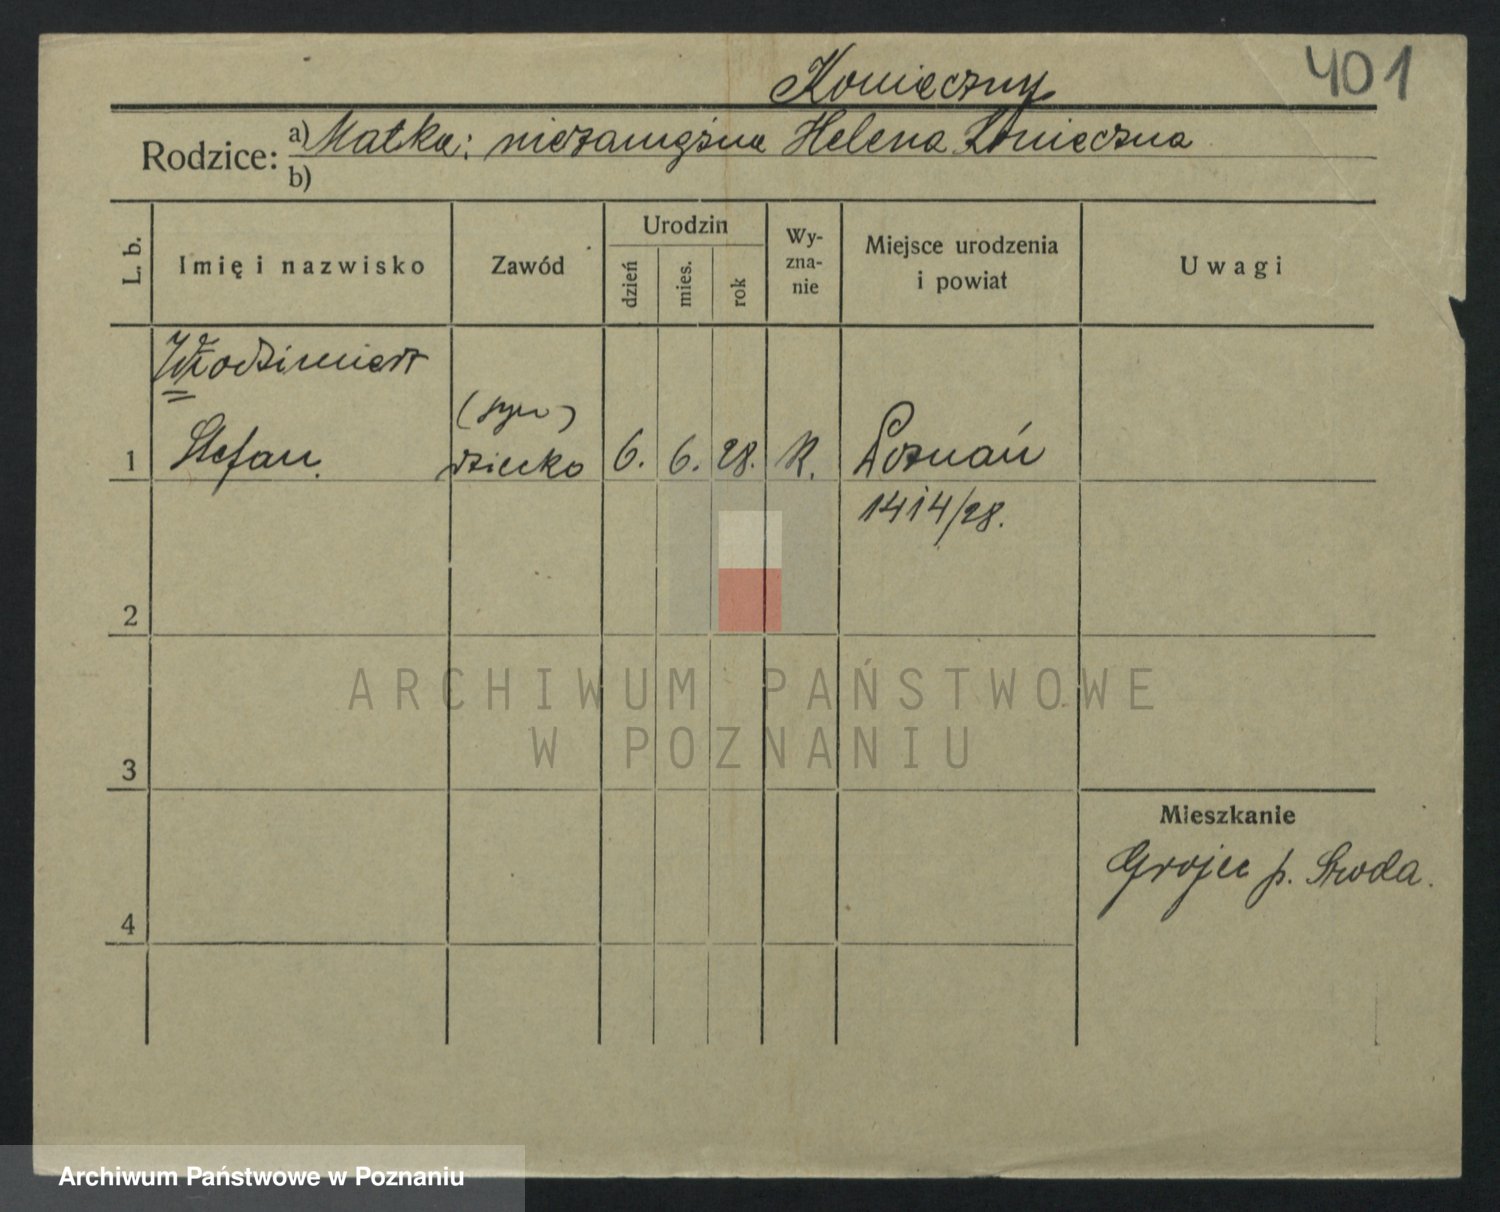 401
Konieczny
Rodzice:
a) Matka: niezamężna Helena Konieczna
b)
L. b.
Imię i nazwisko
Zawód
Urodzin
dzień
mies.
rok
Wy-
zna-
nie
Miejsce urodzenia
i powiat
Uwagi
Włodzimierz
(syn)
1 Stefan. dziecko 6. 6. 28. K. Poznań
1414/28.
2
ARCHIWUM PAŃSTWOWE
W POZNANIU
3
Mieszkanie
Grojec p. Środa.
4
Archiwum Państwowe w Poznaniu